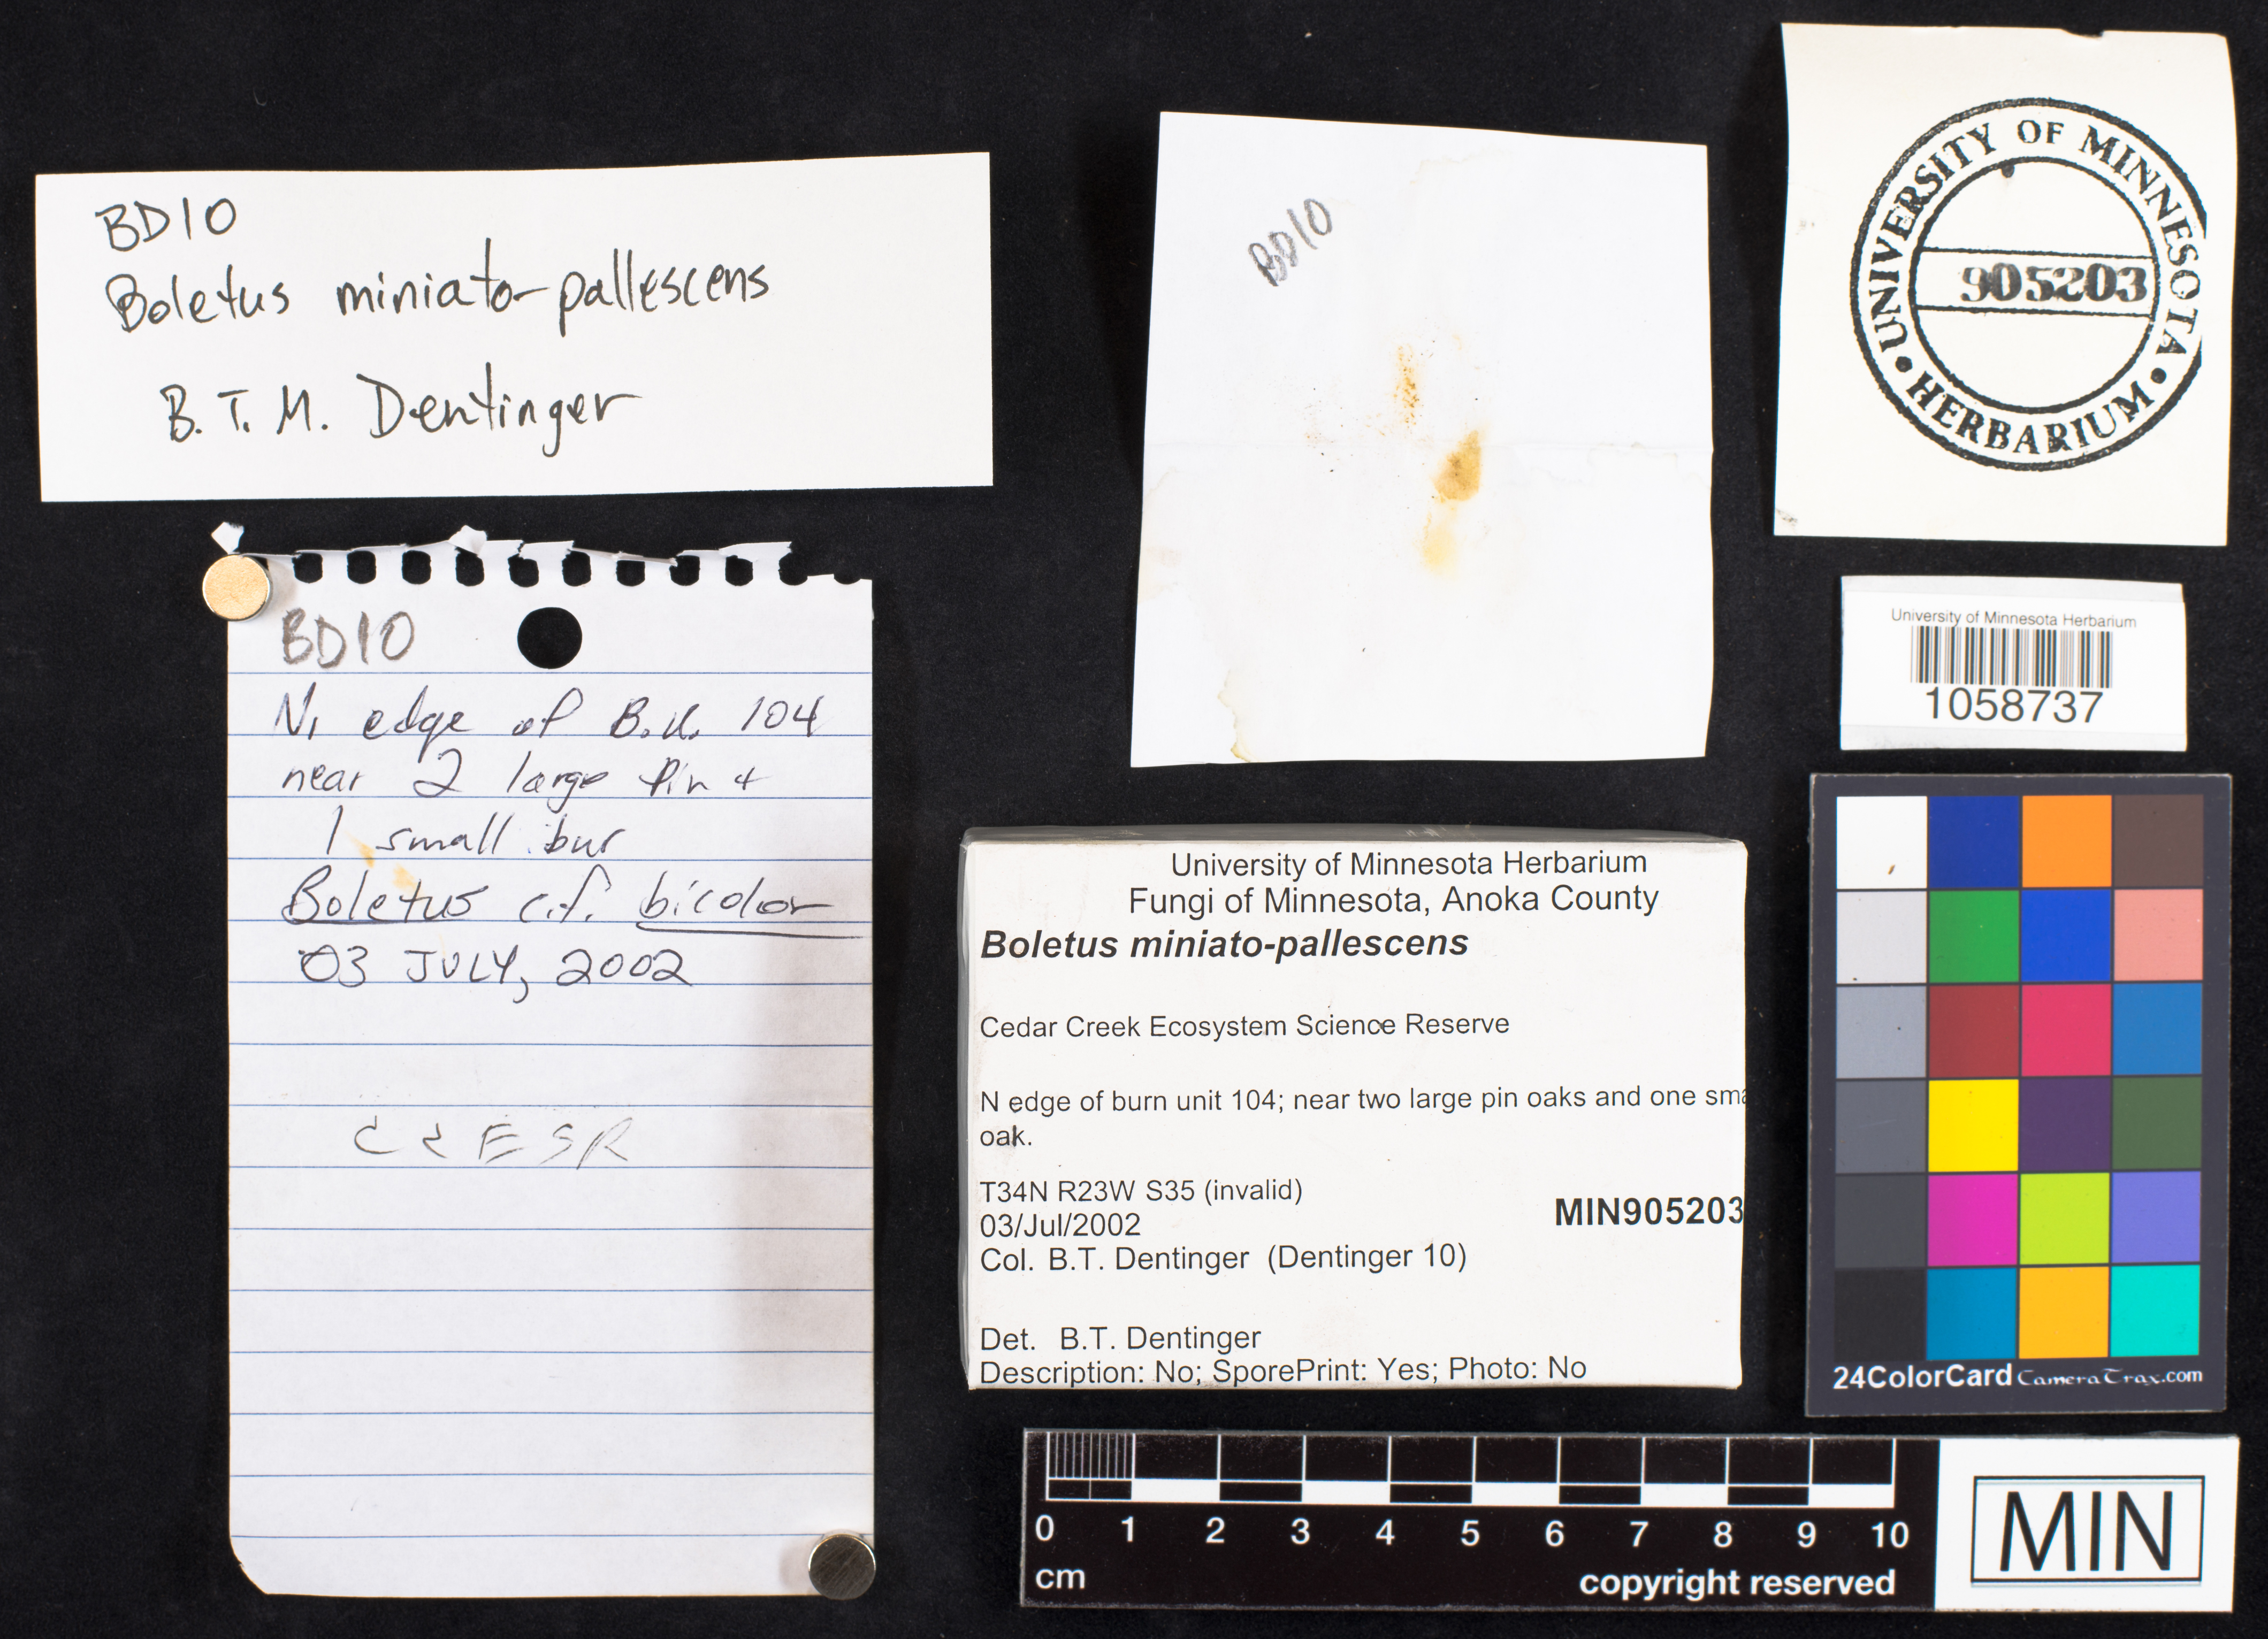 BD10
Boletus miniato-pallescens
B.T.M. Dentinger
BD10
UNIVERSITY OF MINNESOTA
905203
HERBARIUM
University of Minnesota Herbarium
1058737
BD10
N. edge of B.U. 104
near 2 large pin +
1 small bur
Boletus c.f. bicolor
03 JULY, 2002
CCESR
University of Minnesota Herbarium
Fungi of Minnesota, Anoka County
Boletus miniato-pallescens
Cedar Creek Ecosystem Science Reserve
N edge of burn unit 104; near two large pin oaks and one sma
oak.
T34N R23W S35 (invalid)
03/Jul/2002
MIN905203
Col. B.T. Dentinger (Dentinger 10)
Det. B.T. Dentinger
Description: No; SporePrint: Yes; Photo: No
24ColorCard CameraTrax.com
0 1 2 3 4 5 6 7 8 9 10
cm
copyright reserved
MIN